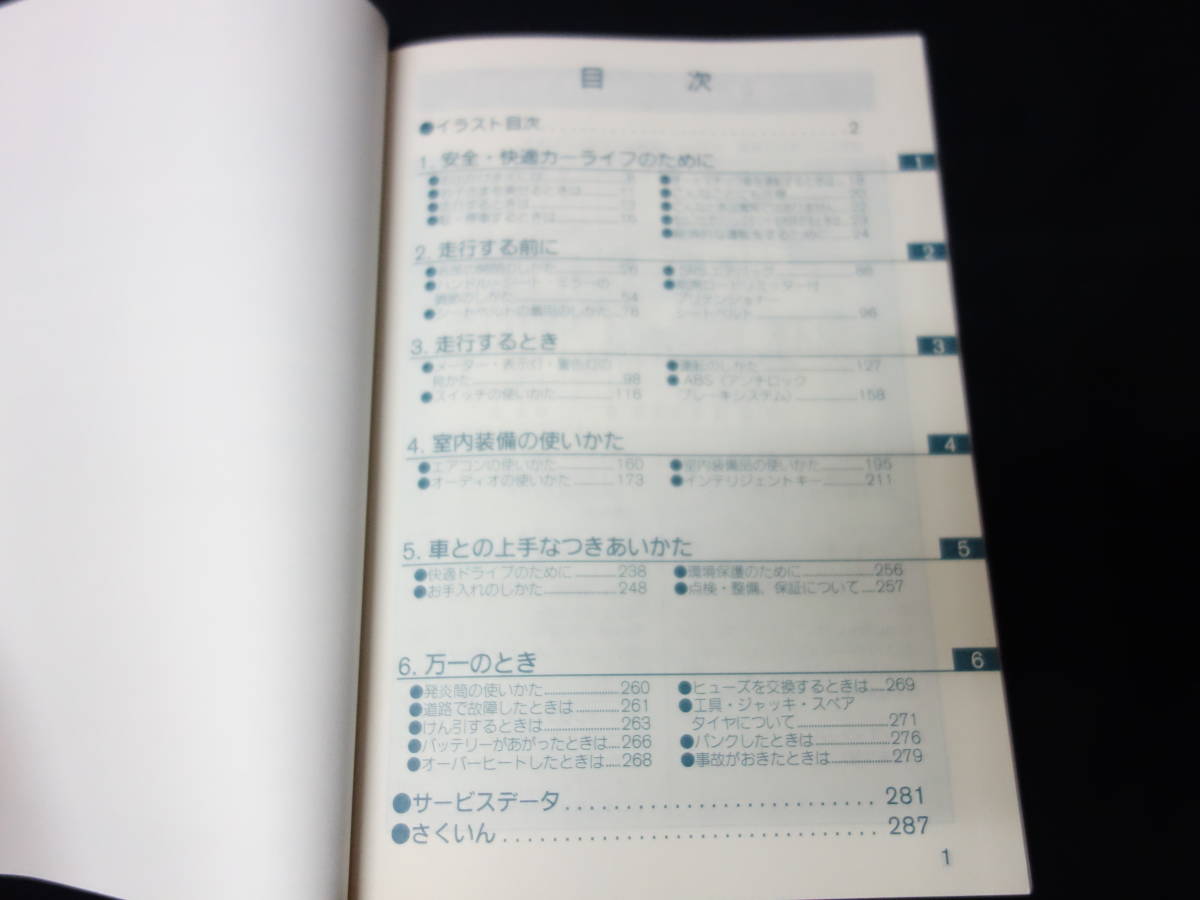 目 次
●イラスト目次 2
1. 安全・快適カーライフのために 1
●走行するときは 13
24
2. 走行する前に 2
●ハンドル・シート・ミラーの
調節のしかた 54
●シートベルトの着用のしかた 78
●SRSエアバッグ 88
プリテンショナー
シートベルト 96
3. 走行するとき 3
●メーター・表示灯・警告灯の
見かた 98
●スイッチの使いかた 116
●運転のしかた 127
●ABS(アンチロック
ブレーキシステム) 158
4. 室内装備の使いかた 4
●エアコンの使いかた 160
●オーディオの使いかた 173
●室内装備品の使いかた 195
●インテリジェントキー 211
5. 車との上手なつきあいかた 5
●快適ドライブのために 238
●お手入れのしかた 248
●環境保護のために 256
●点検・整備、保証について 257
6. 万一のとき 6
●発炎筒の使いかた 260
●道路で故障したときは 261
●けん引するときは 263
●バッテリーがあがったときは 266
●オーバーヒートしたときは 268
●ヒューズを交換するときは 269
●工具・ジャッキ・スペア
タイヤについて 271
●パンクしたときは 276
●事故がおきたときは 279
●サービスデータ 281
●さくいん 287
1